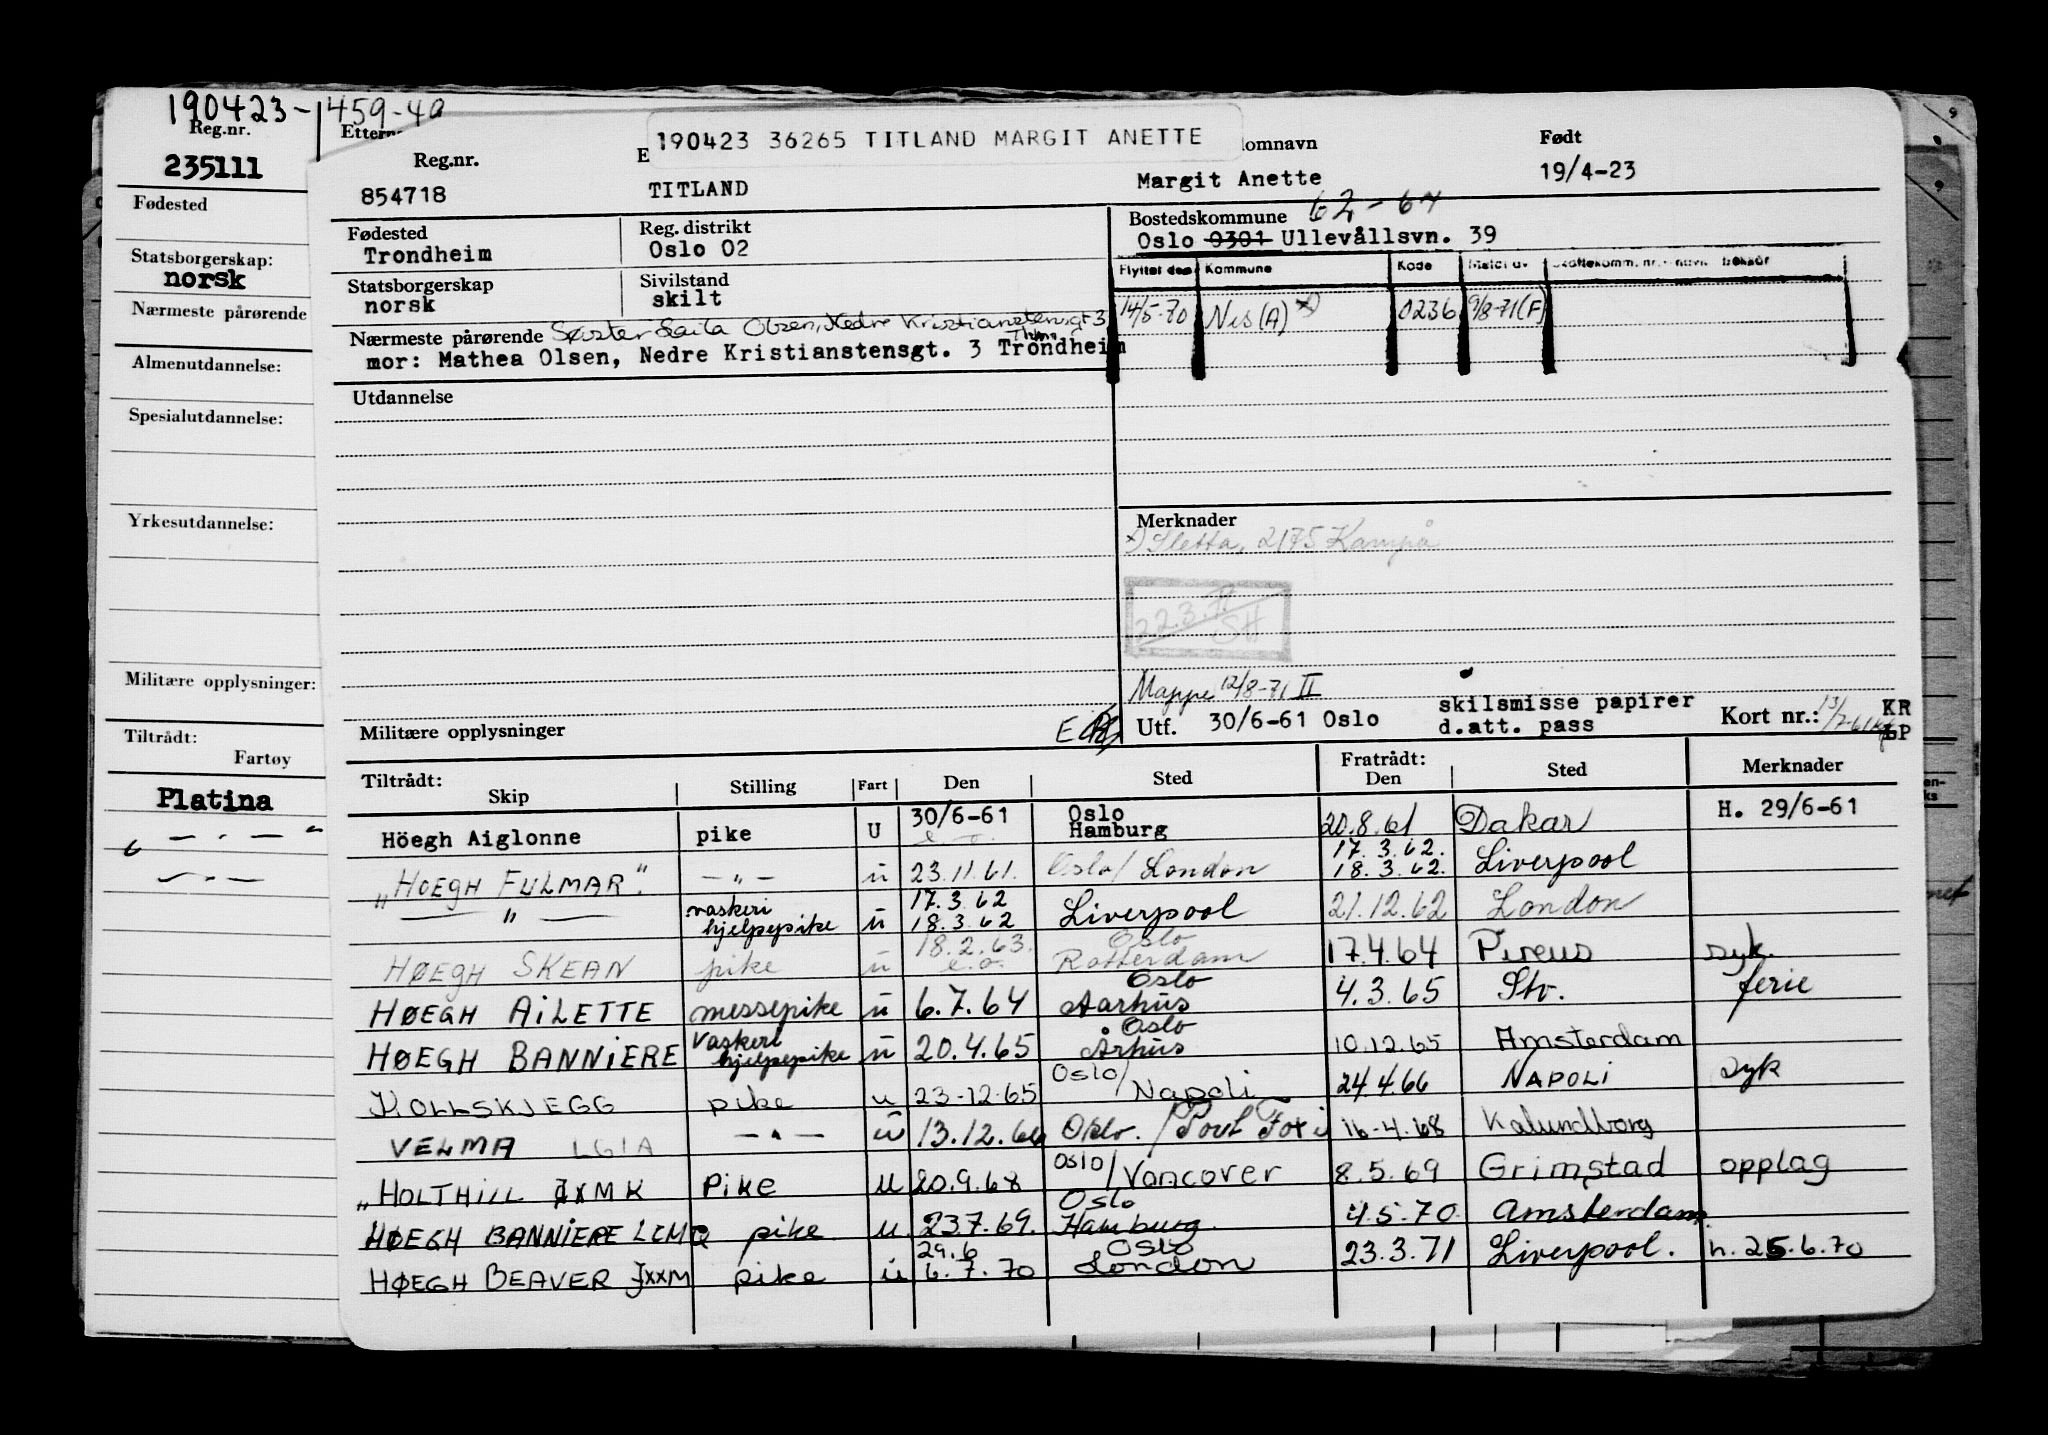 190423-1459-40
Reg.nr.
235111
Fødested
Statsborgerskap:
norsk
Nærmeste pårørende
Almenutdannelse:
Spesialutdannelse:
Yrkesutdannelse:
Militære opplysninger:
Tiltrådt:
Fartøy
Platina
190423 36265 TITLAND MARGIT ANETTE
Reg.nr. Født
854718 TITLAND Margit Anette 19/4-23
Fødested Reg. distrikt Bostedskommune 62-64
Trondheim Oslo 02 Oslo 0301 Ullevållsvn. 39
Statsborgerskap Sivilstand
norsk skilt
Flyttet den Kommune Kode Meldt av
14/5-70 Nes (A) x) 0236 9/8-71(F)
Nærmeste pårørende Søster Laila Olsen, Nedre Kristianstensgt 3
Thhm
mor: Mathea Olsen, Nedre Kristianstensgt. 3 Trondheim
Utdannelse
Merknader
x) Sletta, 2175 Kampå
22.3.71
SH
Mappe 12/8-71 II
Militære opplysninger
Utf. 30/6-61 Oslo skilsmisse papirer
d.att. pass
Kort nr.: KR
LP
Tiltrådt: Fratrådt:
Skip Stilling Fart Den Sted Den Sted Merknader
Höegh Aiglonne pike U 30/6-61 Oslo Hamburg 20.8.61 Dakar H. 29/6-61
"HØEGH FULMAR" — " — u 23.11.61. Oslo/London 17.3.62. 18.3.62. Liverpool
— " — vaskeri hjelpepike u 17.3.62 18.3.62 Liverpool 21.12.62 London
HØEGH SKEAN pike u 18.2.63. e.o. Oslo Rotterdam 17.4.64 Pireus syk.
HØEGH AILETTE messepike u 6.7.64 Oslo Aarhus 4.3.65 Stv. ferie
HØEGH BANNIERE Vaskeri hjelpepike u 20.4.65 Oslo Århus 10.12.65 Amsterdam
KOLLSKJEGG pike u 23-12-65 Oslo/Napoli 24.4.66 NAPOLI Syk
VELMA LGIA — " — u 13.12.66 Oslo. / 16-4-68 Kalundborg
"HOLTHILL JXMK Pike u 20.9.68 Oslo/Vancover 8.5.69 Grimstad opplag
HØEGH BANNIERE LCMQ pike u. 23.7.69. Oslo Hamburg. 4.5.70 Amsterdam.
HØEGH BEAVER JXXM pike u 29.6 6.7.70 Oslo London 23.3.71 Liverpool. h. 25.6.70